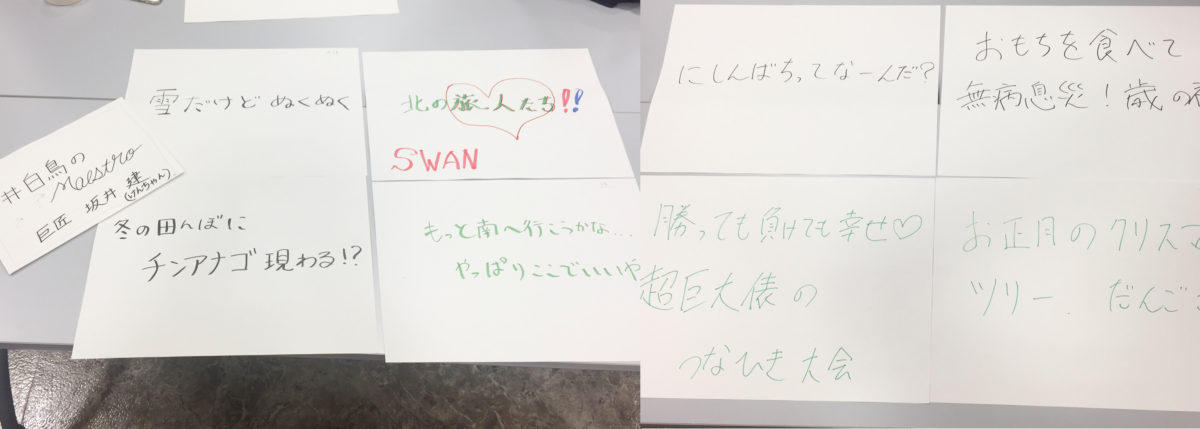 雪だけどぬくぬく
北の旅人たち!!
SWAN
#白鳥の
Maestro
巨匠 坂井 建
(けんちゃん)
冬の田んぼに
チンアナゴ現わる!?
もっと南へ行こうかな...
やっぱりここでいいや
にしんばちってなーんだ?
おもちを食べて
無病息災!歳の
勝っても負けても幸せ♡
超巨大俵の
つなひき大会
お正月のクリスマ
ツリー、だんご